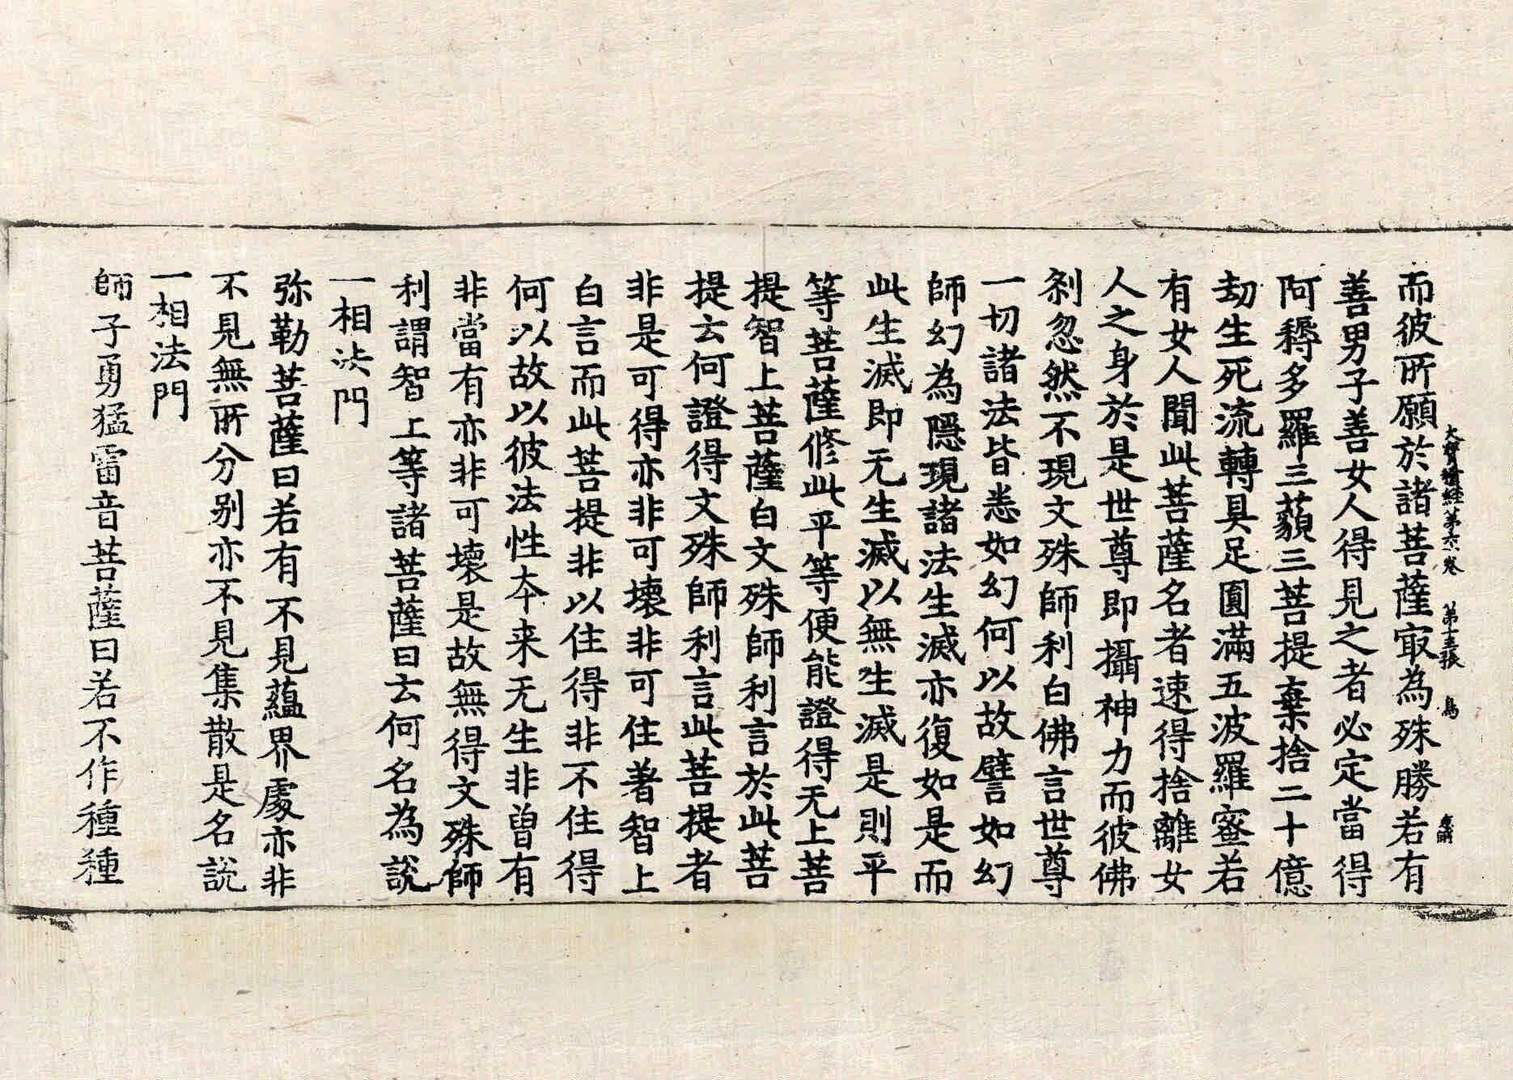 大寶積經第六十卷 第十五張 鳥
而彼所願於諸菩薩冣為殊勝若有
善男子善女人得見之者必定當得
阿耨多羅三藐三菩提棄捨二十億
劫生死流轉具足圓滿五波羅蜜若
有女人聞此菩薩名者速得捨離女
人之身於是世尊即攝神力而彼佛
剎忽然不現文殊師利白佛言世尊
一切諸法皆悉如幻何以故譬如幻
師幻為隱現諸法生滅亦復如是而
此生滅即无生滅以無生滅是則平
等菩薩修此平等便能證得无上菩
提智上菩薩白文殊師利言於此菩
提云何證得文殊師利言此菩提者
非是可得亦非可壞非可住著智上
白言而此菩提非以住得非不住得
何以故以彼法性本来无生非曽有
非當有亦非可壞是故無得文殊師
利謂智上等諸菩薩曰云何名為說
一相法門
弥勒菩薩曰若有不見蘊界處亦非
不見無所分别亦不見集散是名說
一相法門
師子勇猛雷音菩薩曰若不作種種